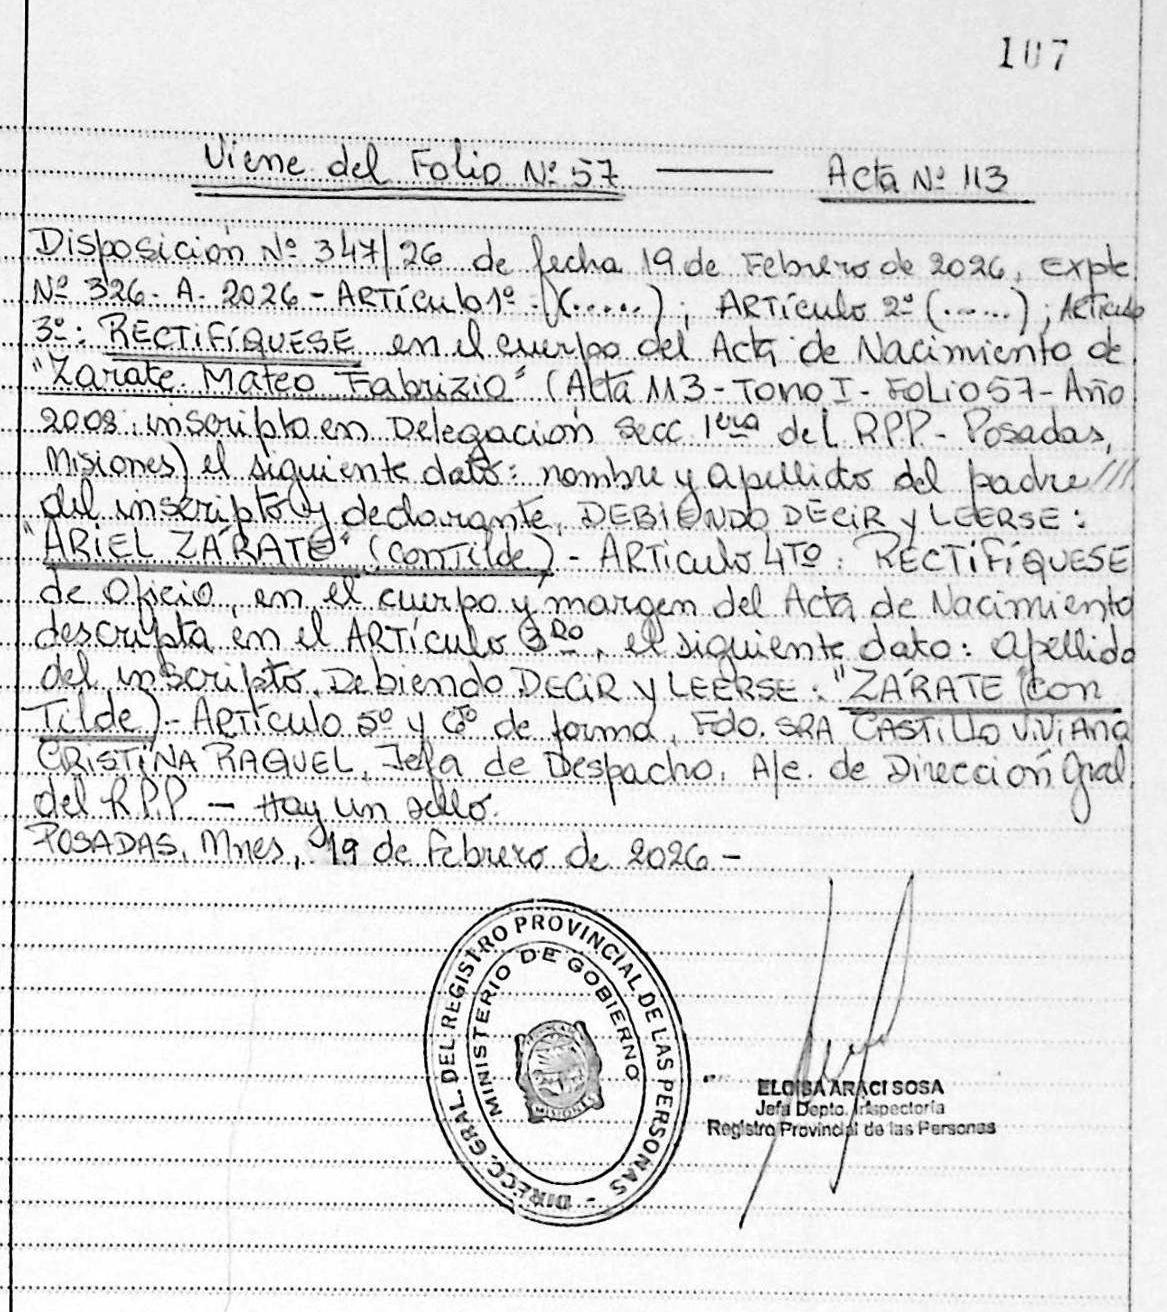 107
Viene del Folio Nº 57 —— Acta Nº 113
Disposición Nº 347/26 de fecha 19 de Febrero de 2026, Expte
Nº 326-A-2026-ARTículo 1º: (.....); ARTículo 2º (.....); ARTículo
3º: RECTIFÍQUESE en el cuerpo del Acta de Nacimiento de
"Zarate Mateo Fabrizio" (Acta 113-Tomo I-Folio 57-Año
2008 inscripta en Delegación Secc 1era del RPP-Posadas,
Misiones) el siguiente dato: nombre y apellido del padre ///
del inscripto y declarante, DEBIENDO DECIR y LEERSE:
"ARIEL ZÁRATE" (con Tilde)-ARTículo 4TO: RECTIFÍQUESE
de Oficio, en el cuerpo y margen del Acta de Nacimiento
descripta en el ARTículo 3RO, el siguiente dato: apellido
del inscripto, Debiendo DECIR y LEERSE: "ZÁRATE (con
Tilde)-ARTículo 5º y 6º de forma, Fdo. SRA CASTILLO VIVIANA
CRISTINA RAQUEL, Jefa de Despacho, A/c. de Dirección Gral
del R.P.P — Hay un sello.
POSADAS, Mnes, 19 de Febrero de 2026-
DIRECC. GRAL. DEL REGISTRO PROVINCIAL DE LAS PERSONAS -
MINISTERIO DE GOBIERNO
MISIONES
ELOISA ARACI SOSA
Jefa Depto. Inspectoría
Registro Provincial de las Personas